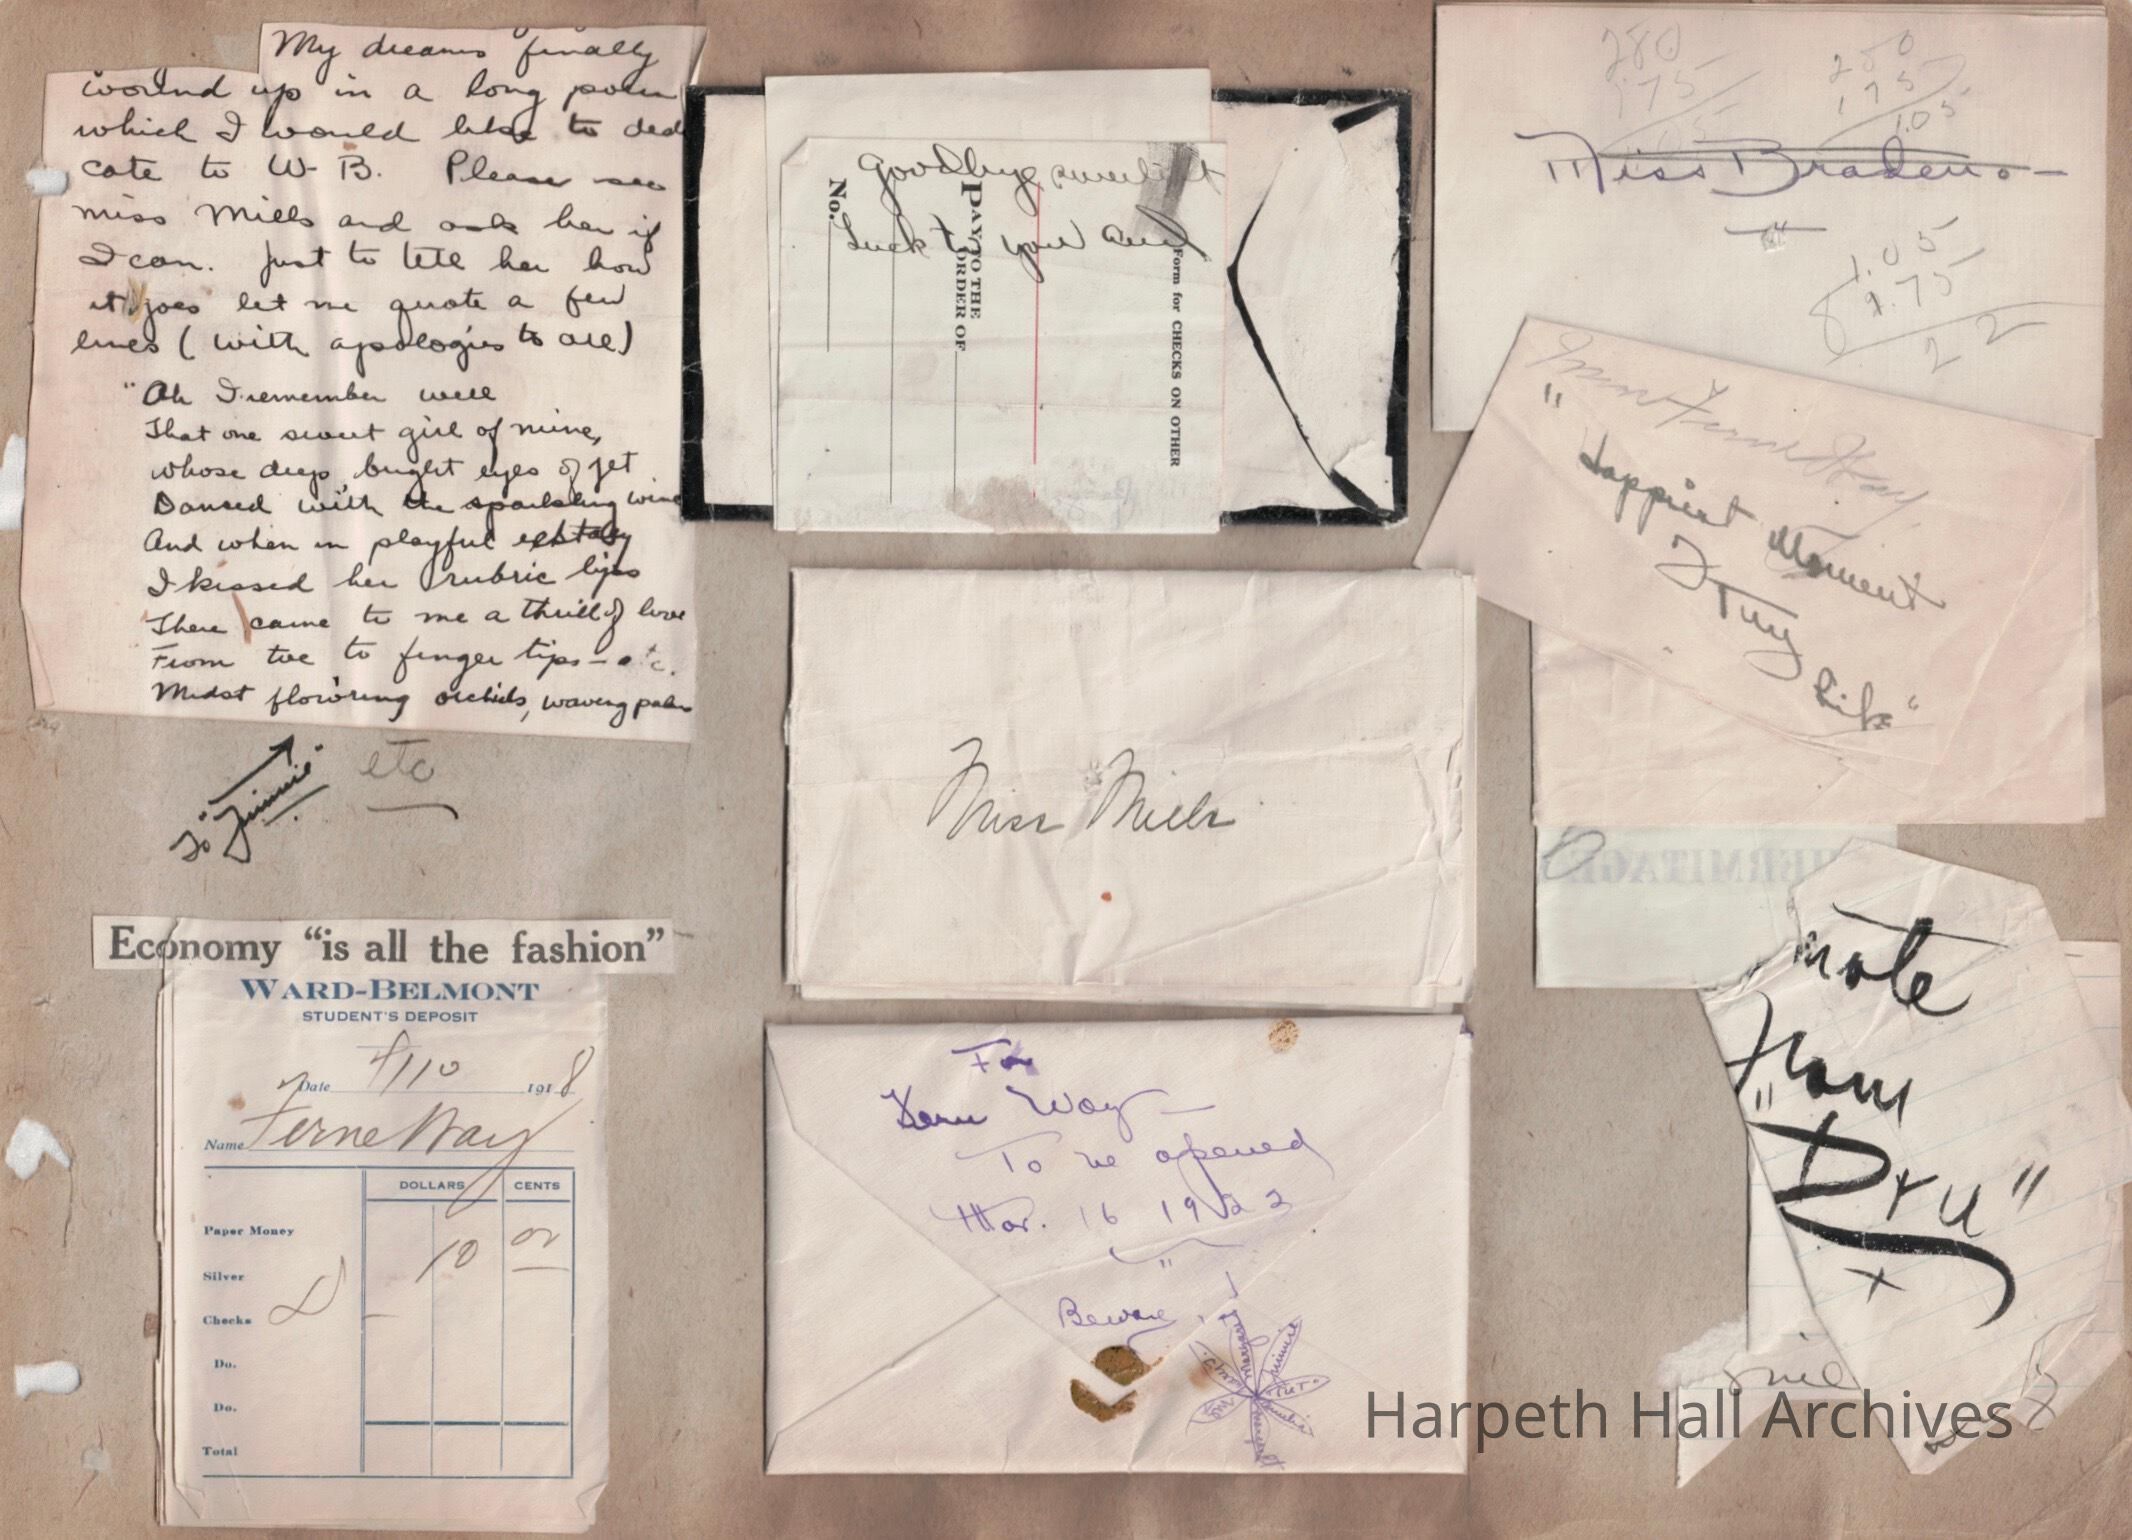 My dreams finally
wound up in a long poem
which I would like to ded
cate to W-B. Please see
miss Mills and ask her if
I can. Just to tell her how
it goes let me quote a few
lines (with apologies to all)
"Ah I remember well
That one sweet girl of mine,
whose deep, bright eyes of jet
Danced with the sparkling wine
And when in playful
I kissed her rubric lips
There came to me a thrill of love
From toe to finger tips - etc.
Midst flow'ring orchids, waving palms
To "Jimmie"
etc
Economy “is all the fashion”
WARD-BELMONT
STUDENT'S DEPOSIT
Date 4/10 1918
Name Ferne Way
DOLLARS CENTS
Paper Money
Silver 10 00
Checks
Do.
Do.
Total
Goodbye sweetest
Luck to you and
No.
PAY TO THE
ORDER OF
Form for CHECKS ON OTHER
Miss Mills
For
Fern Way
To be opened
Mar. 16 1923
Beware
Margaret
Jimmie
TUT
280
175
1.05
280
175
1.05
Miss Braden
1.05
1.75
Miss Ferne Way
"Happiest Moment
of my
Life"
HERMITAGE
note
from
"Dru"
x
Harpeth Hall Archives